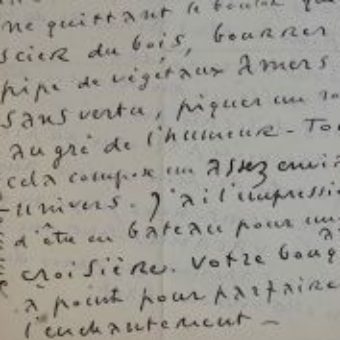 ne quittant le boulot que
scier du bois, bourrer
pipe de végétaux amers
sans vertu, piquer un
au gré de l'humeur - To
cela compose un assez
univers. J'ai l'impressi
d'être en bateau pour un
croisière. Votre bouq
à point pour parfaire
l'enchantement -